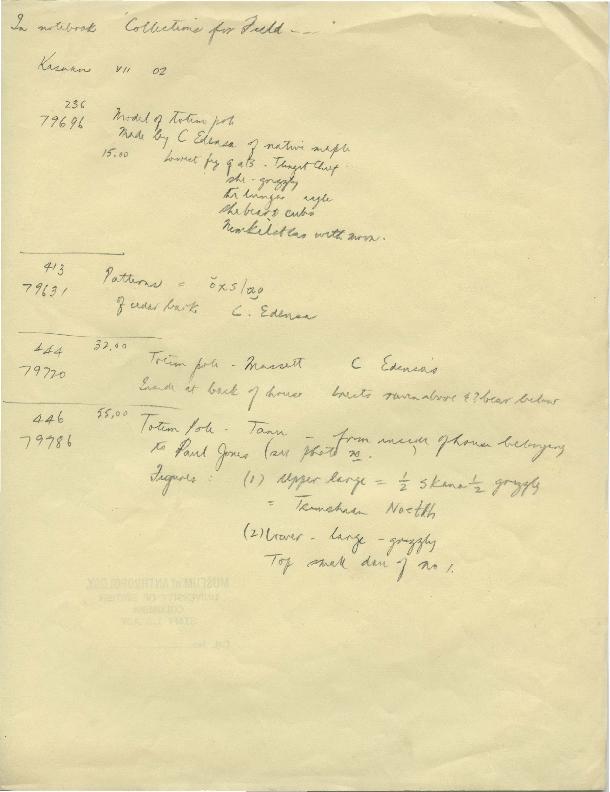 In notebook "Collections for Field - - -"
Kasaan VII 02
236
79696 Model of totem pole
Made by C Edensa of native maple
15.00 Lowest fig q als - Tsimsh Chief
she - grizzly
eagle
she bear & cubs
with moon.
413
79631 Patterns =
of cedar bark C. Edensa
444 32.00
79720 Totem pole - Massett C Edensa's
Inside at back of house raven above & ? bear below
446 55.00 Totem Pole - Tanu - from inside of house belonging
79786 to Paul Jones (see photo no. )
Figures : (1) Upper large = ½ Skana ½ grizzly
= Tsimshian
(2) Lower - large - grizzly
Top small dau of no 1.
MUSEUM of ANTHROPOLOGY
UNIVERSITY OF BRITISH
COLUMBIA